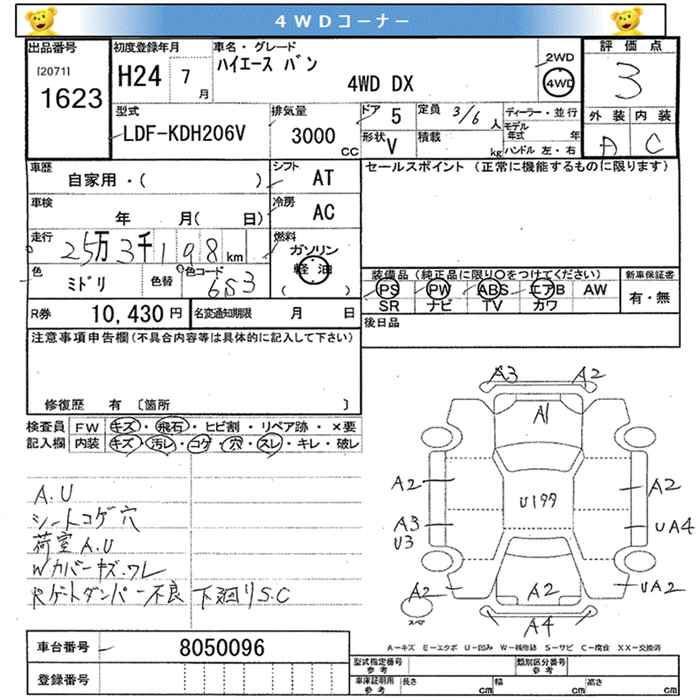 4WDコーナー
出品番号
[2071]
1623
初度登録年月
H24 7月
車名・グレード
ハイエース バン
4WD DX
2WD
4WD
評価点
3
外装 内装
A C
型式
LDF-KDH206V
排気量
3000 CC
ドア 5
形状 V
定員 3/6 人
積載 kg
ディーラー・並行
モデル年式 年
ハンドル 左・右
車歴
自家用・( )
シフト AT
車検
年 月( 日)
冷房 AC
走行
25万3千198km
燃料
ガソリン
軽油
( )
色
ミドリ
色替
色コード
6S3
R券 10,430円
名変通知期限 月 日
セールスポイント (正常に機能するものに限ります)
装備品 (純正品に限り○をつけてください)
PS PW ABS エアB AW
SR ナビ TV カワ
新車保証書
有・無
後日品
注意事項申告欄(不具合内容等は具体的に記入して下さい)
修復歴 有 〔箇所 〕
検査員記入欄
FW キズ・飛石・ヒビ割・リペア跡・×要
内装 キズ・汚レ・コゲ・穴・スレ・キレ・破レ
A.U
シートコゲ穴
荷室A.U
Wカバーキズ.ワレ
Rゲートダンパー不良 下廻りS.C
A3 A2
A1
A2 A2
U199
A3 U3 UA4
A2 A2 UA2
A4
スペア
A-キズ E-エクボ U-凹み W-補修跡 S-サビ C-腐食 XX-交換済
車台番号 8050096
登録番号
型式指定番号 参考
類別区分番号 参考
車庫証明用 参考
長さ cm 幅 cm 高さ cm